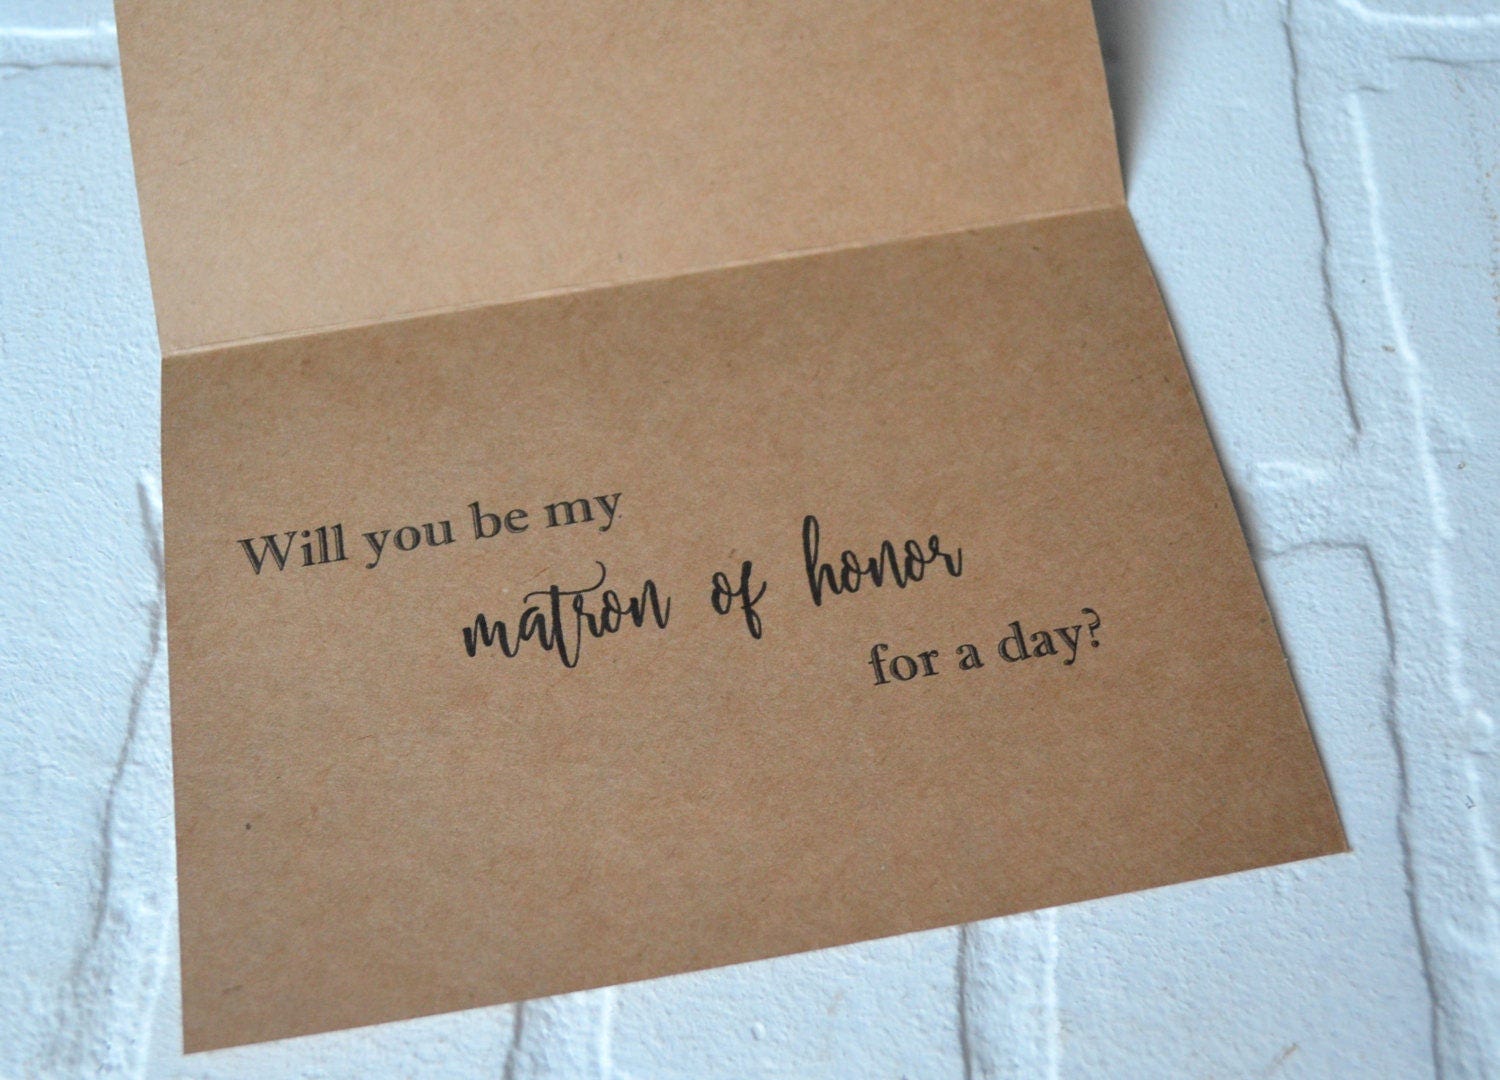 Will you be my
matron of honor
for a day?